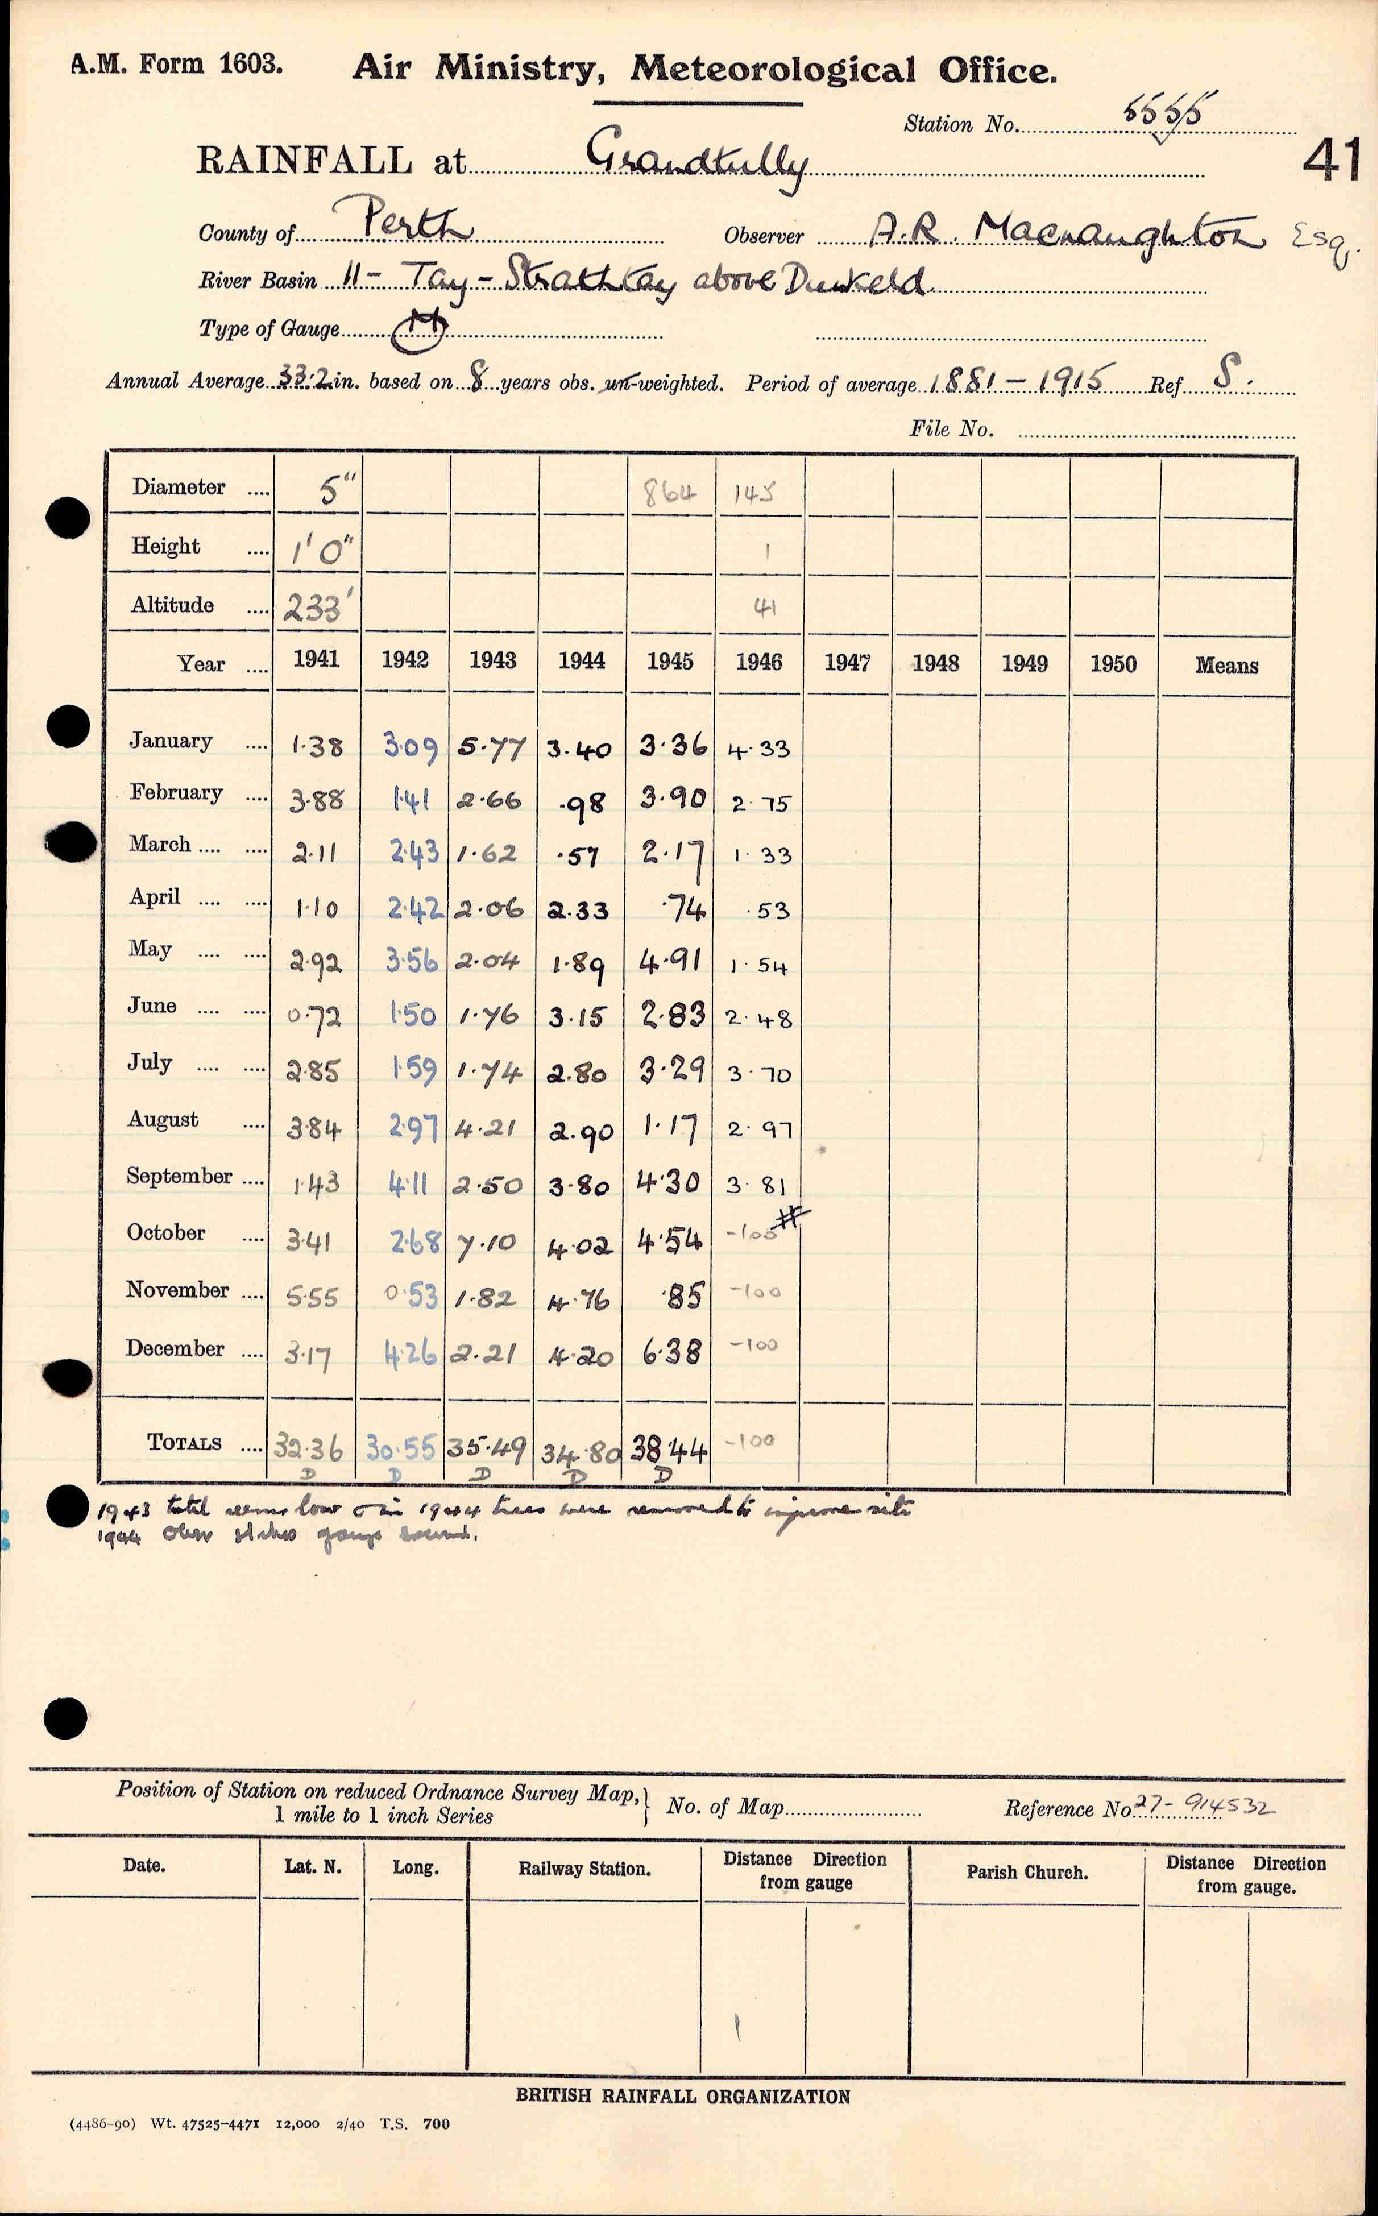 A.M. Form 1603. Air Ministry, Meteorological Office.
Station No. 5555
RAINFALL at Grandtully 41
County of Perth Observer A.R. Macnaughton Esq.
River Basin 11 - Tay - Strathtay above Dunkeld
Type of Gauge M
Annual Average 33.2 in. based on 8 years obs. un-weighted. Period of average 1881 - 1915 Ref S.
File No.
Diameter .... 5" 864 145
Height .... 1' 0" 1
Altitude .... 233' 41
Year .... 1941 1942 1943 1944 1945 1946 1947 1948 1949 1950 Means
January .... 1.38 3.09 5.77 3.40 3.36 4.33
February .... 3.88 1.41 2.66 .98 3.90 2.75
March .... .... 2.11 2.43 1.62 .57 2.17 1.33
April .... .... 1.10 2.42 2.06 2.33 .74 .53
May .... .... 2.92 3.56 2.04 1.89 4.91 1.54
June .... .... 0.72 1.50 1.76 3.15 2.83 2.48
July .... .... 2.85 1.59 1.74 2.80 3.29 3.70
August .... 3.84 2.97 4.21 2.90 1.17 2.97
September .... 1.43 4.11 2.50 3.80 4.30 3.81
October .... 3.41 2.68 7.10 4.02 4.54 -100 #
November .... 5.55 0.53 1.82 4.76 .85 -100
December .... 3.17 4.26 2.21 4.20 6.38 -100
TOTALS .... 32.36 30.55 35.49 34.80 38.44 -100
D D D D D
1943 total seems low in 1944 trees were removed to improve site
1944 Obsr states gauge sound.
Position of Station on reduced Ordnance Survey Map, } No. of Map Reference No 27- 914532
1 mile to 1 inch Series
Date. Lat. N. Long. Railway Station. Distance Direction from gauge Parish Church. Distance Direction from gauge.
BRITISH RAINFALL ORGANIZATION
(4486-90) Wt. 47525-4471 12,000 2/40 T.S. 700